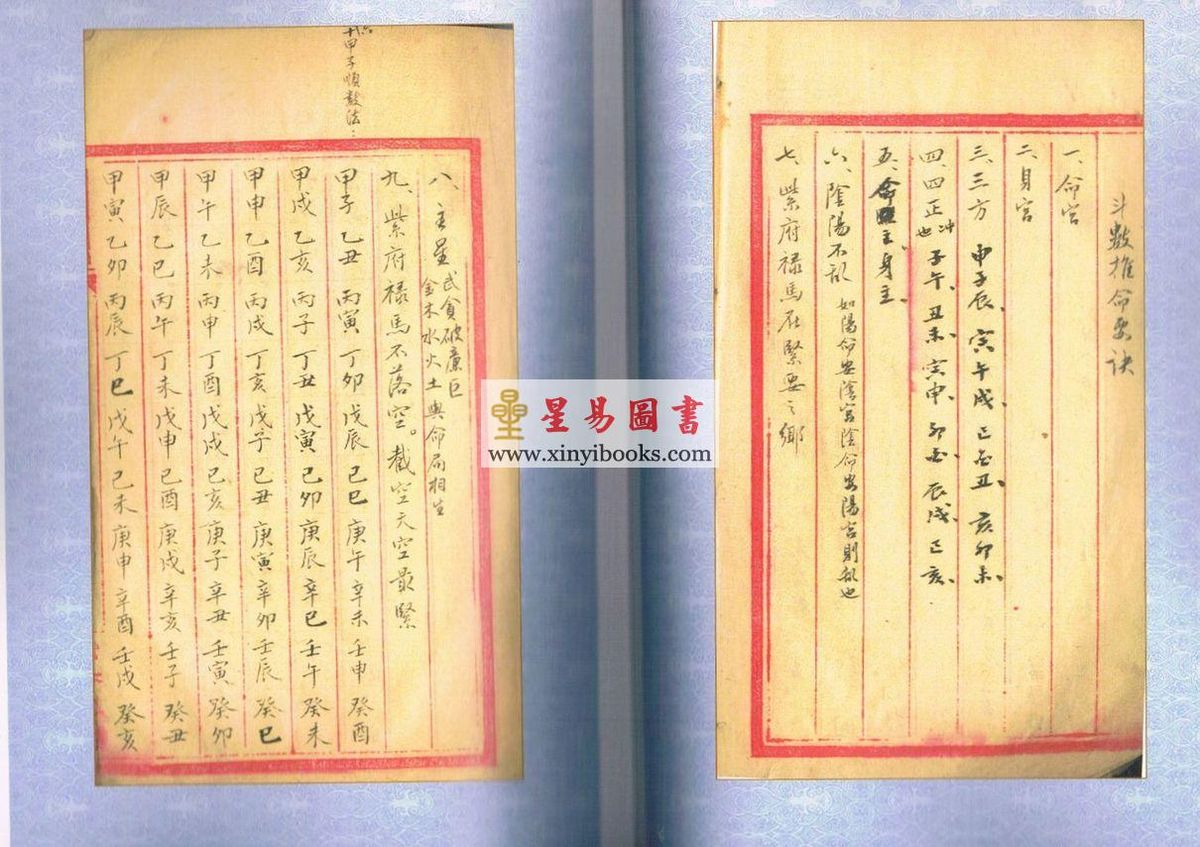 斗數推命要訣
一、命宮
二、身宮
三、三方 申子辰、寅午戌、巳酉丑、亥卯未、
四、四正 冲也 子午、丑未、寅申、卯酉、辰戌、巳亥、
五、命主、身主、
六、陰陽不乱 如陽命安陰宮陰命安陽宮則乱也
七、紫府祿馬在緊要之鄉
八、主星 武貪破廉巨
金木水火土與命局相生
九、紫府祿馬不落空。截空天空最緊
六十甲子順數法：
甲子 乙丑 丙寅 丁卯 戊辰 己巳 庚午 辛未 壬申 癸酉
甲戌 乙亥 丙子 丁丑 戊寅 己卯 庚辰 辛巳 壬午 癸未
甲申 乙酉 丙戌 丁亥 戊子 己丑 庚寅 辛卯 壬辰 癸巳
甲午 乙未 丙申 丁酉 戊戌 己亥 庚子 辛丑 壬寅 癸卯
甲辰 乙巳 丙午 丁未 戊申 己酉 庚戌 辛亥 壬子 癸丑
甲寅 乙卯 丙辰 丁巳 戊午 己未 庚申 辛酉 壬戌 癸亥
星易圖書
www.xinyibooks.com